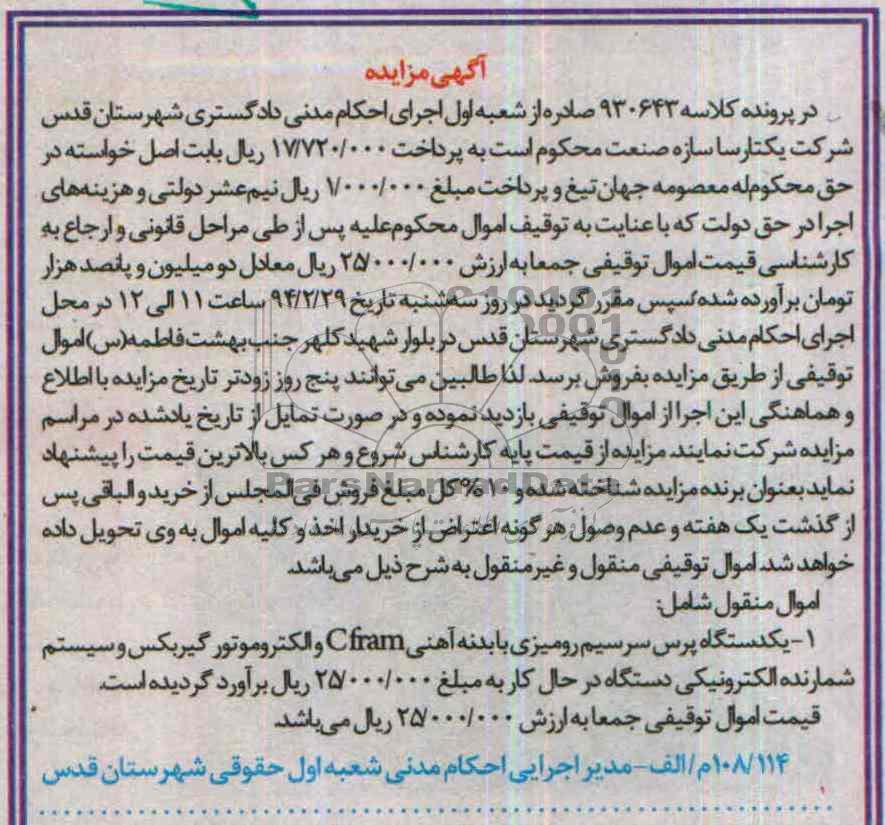 آگهی مزایده
در پرونده کلاسه ۹۳۰۶۴۳ صادره از شعبه اول اجرای احکام مدنی دادگستری شهرستان قدس
شرکت یکتارسا سازه صنعت محکوم است به پرداخت ۱۷/۷۲۰/۰۰۰ ریال بابت اصل خواسته در
حق محکوم‌له معصومه جهان‌تیغ و پرداخت مبلغ ۱/۰۰۰/۰۰۰ ریال نیم‌عشر دولتی و هزینه‌های
اجرا در حق دولت که با عنایت به توقیف اموال محکوم‌علیه پس از طی مراحل قانونی و ارجاع به
کارشناسی قیمت اموال توقیفی جمعا به ارزش ۲۵/۰۰۰/۰۰۰ ریال معادل دو میلیون و پانصد هزار
تومان برآورده شده/سپس مقرر گردید در روز سه‌شنبه تاریخ ۹۴/۲/۲۹ ساعت ۱۱ الی ۱۲ در محل
اجرای احکام مدنی دادگستری شهرستان قدس در بلوار شهید کلهر جنب بهشت فاطمه(س) اموال
توقیفی از طریق مزایده بفروش برسد. لذا طالبین می‌توانند پنج روز زودتر تاریخ مزایده با اطلاع
و هماهنگی این اجرا از اموال توقیفی بازدید نموده و در صورت تمایل از تاریخ یادشده در مراسم
مزایده شرکت نمایند. مزایده از قیمت پایه کارشناس شروع و هر کس بالاترین قیمت را پیشنهاد
نماید بعنوان برنده مزایده شناخته شده و ۱۰% کل مبلغ فروش فی‌المجلس از خرید و الباقی پس
از گذشت یک هفته و عدم وصول هر گونه اعتراض از خریدار اخذ و کلیه اموال به وی تحویل داده
خواهد شد. اموال توقیفی منقول و غیرمنقول به شرح ذیل می‌باشد.
اموال منقول شامل:
۱- یکدستگاه پرس سر سیم رومیزی با بدنه آهنی Cfram و الکتروموتور گیربکس و سیستم
شمارنده الکترونیکی دستگاه در حال کار به مبلغ ۲۵/۰۰۰/۰۰۰ ریال برآورد گردیده است.
قیمت اموال توقیفی جمعا به ارزش ۲۵/۰۰۰/۰۰۰ ریال می‌باشد.
۱۰۸/۱۱۴م/الف-مدیر اجرایی احکام مدنی شعبه اول حقوقی شهرستان قدس
ParsNamadData